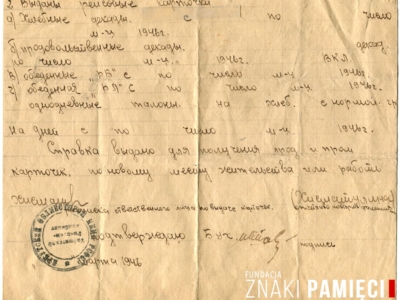 2) Выданы рейсовые карточки
а) Хлебные декады. с по число
м-ц 1946г.
б) продовольственные декады. декад.
по число м-ц 1946г. ВКЛ
в) обеденные "РБ" с по число м-ц 1946г
г) обеденной "РЯ" с по число м-ц 1946г.
однодневные талоны. на хлеб. с нормой гр
На дней с по число м-ц 1946г.
Справка выдано для получения прод и пром
карточек, по новому месту жительства или работы
подпись ответственного лица по выдаче карточек.
подтверждаю Бух
подпись
марта 1946
FUNDACJA
ZNAKI PAMIĘCI